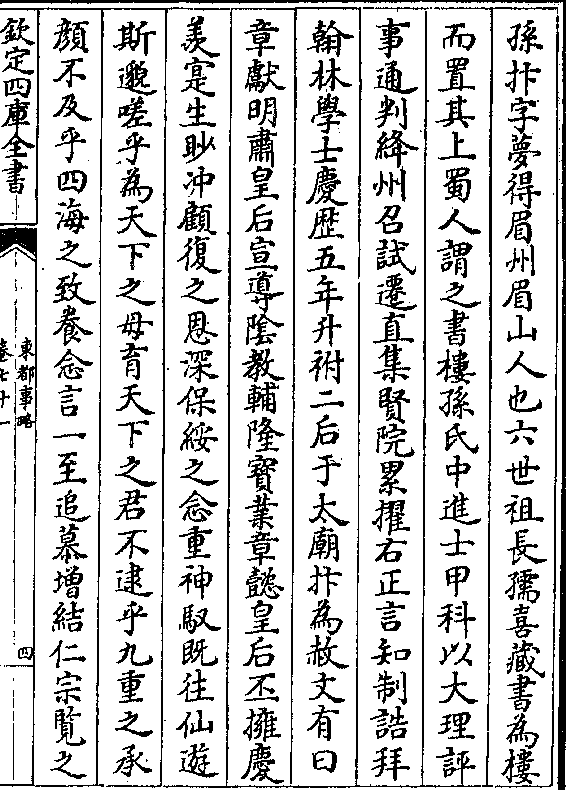 孫抃字夢得眉州眉山人也六世祖長孺喜藏書為樓
而置其上蜀人謂之書樓孫氏中進士甲科以大理評
事通判絳州召試遷直集賢院累擢右正言知制誥拜
翰林學士慶歴五年升祔二后于太廟抃為赦文有曰
章獻明肅皇后宣導隂教輔隆寶業章懿皇后丕擁慶
羨寔生眇冲顧復之恩深保綏之念重神馭既往仙遊
斯邈嗟乎為天下之母育天下之君不逮乎九重之承
顔不及乎四海之致養念言一至追慕增結仁宗覽之
欽定四庫全書
東都事略
卷七十一
四